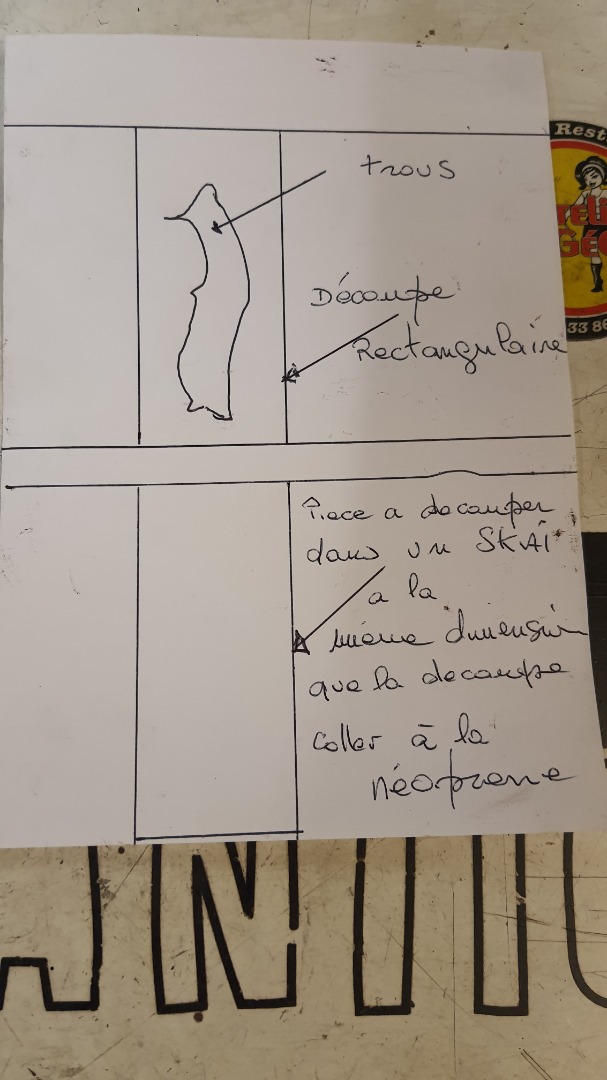 trous
Découpe
Rectangulaire
Pièce a decouper
dans un SKAÏ
a la
même dimension
que la decoupe
Coller à la
néoprene
Rest
33 86
ANTI